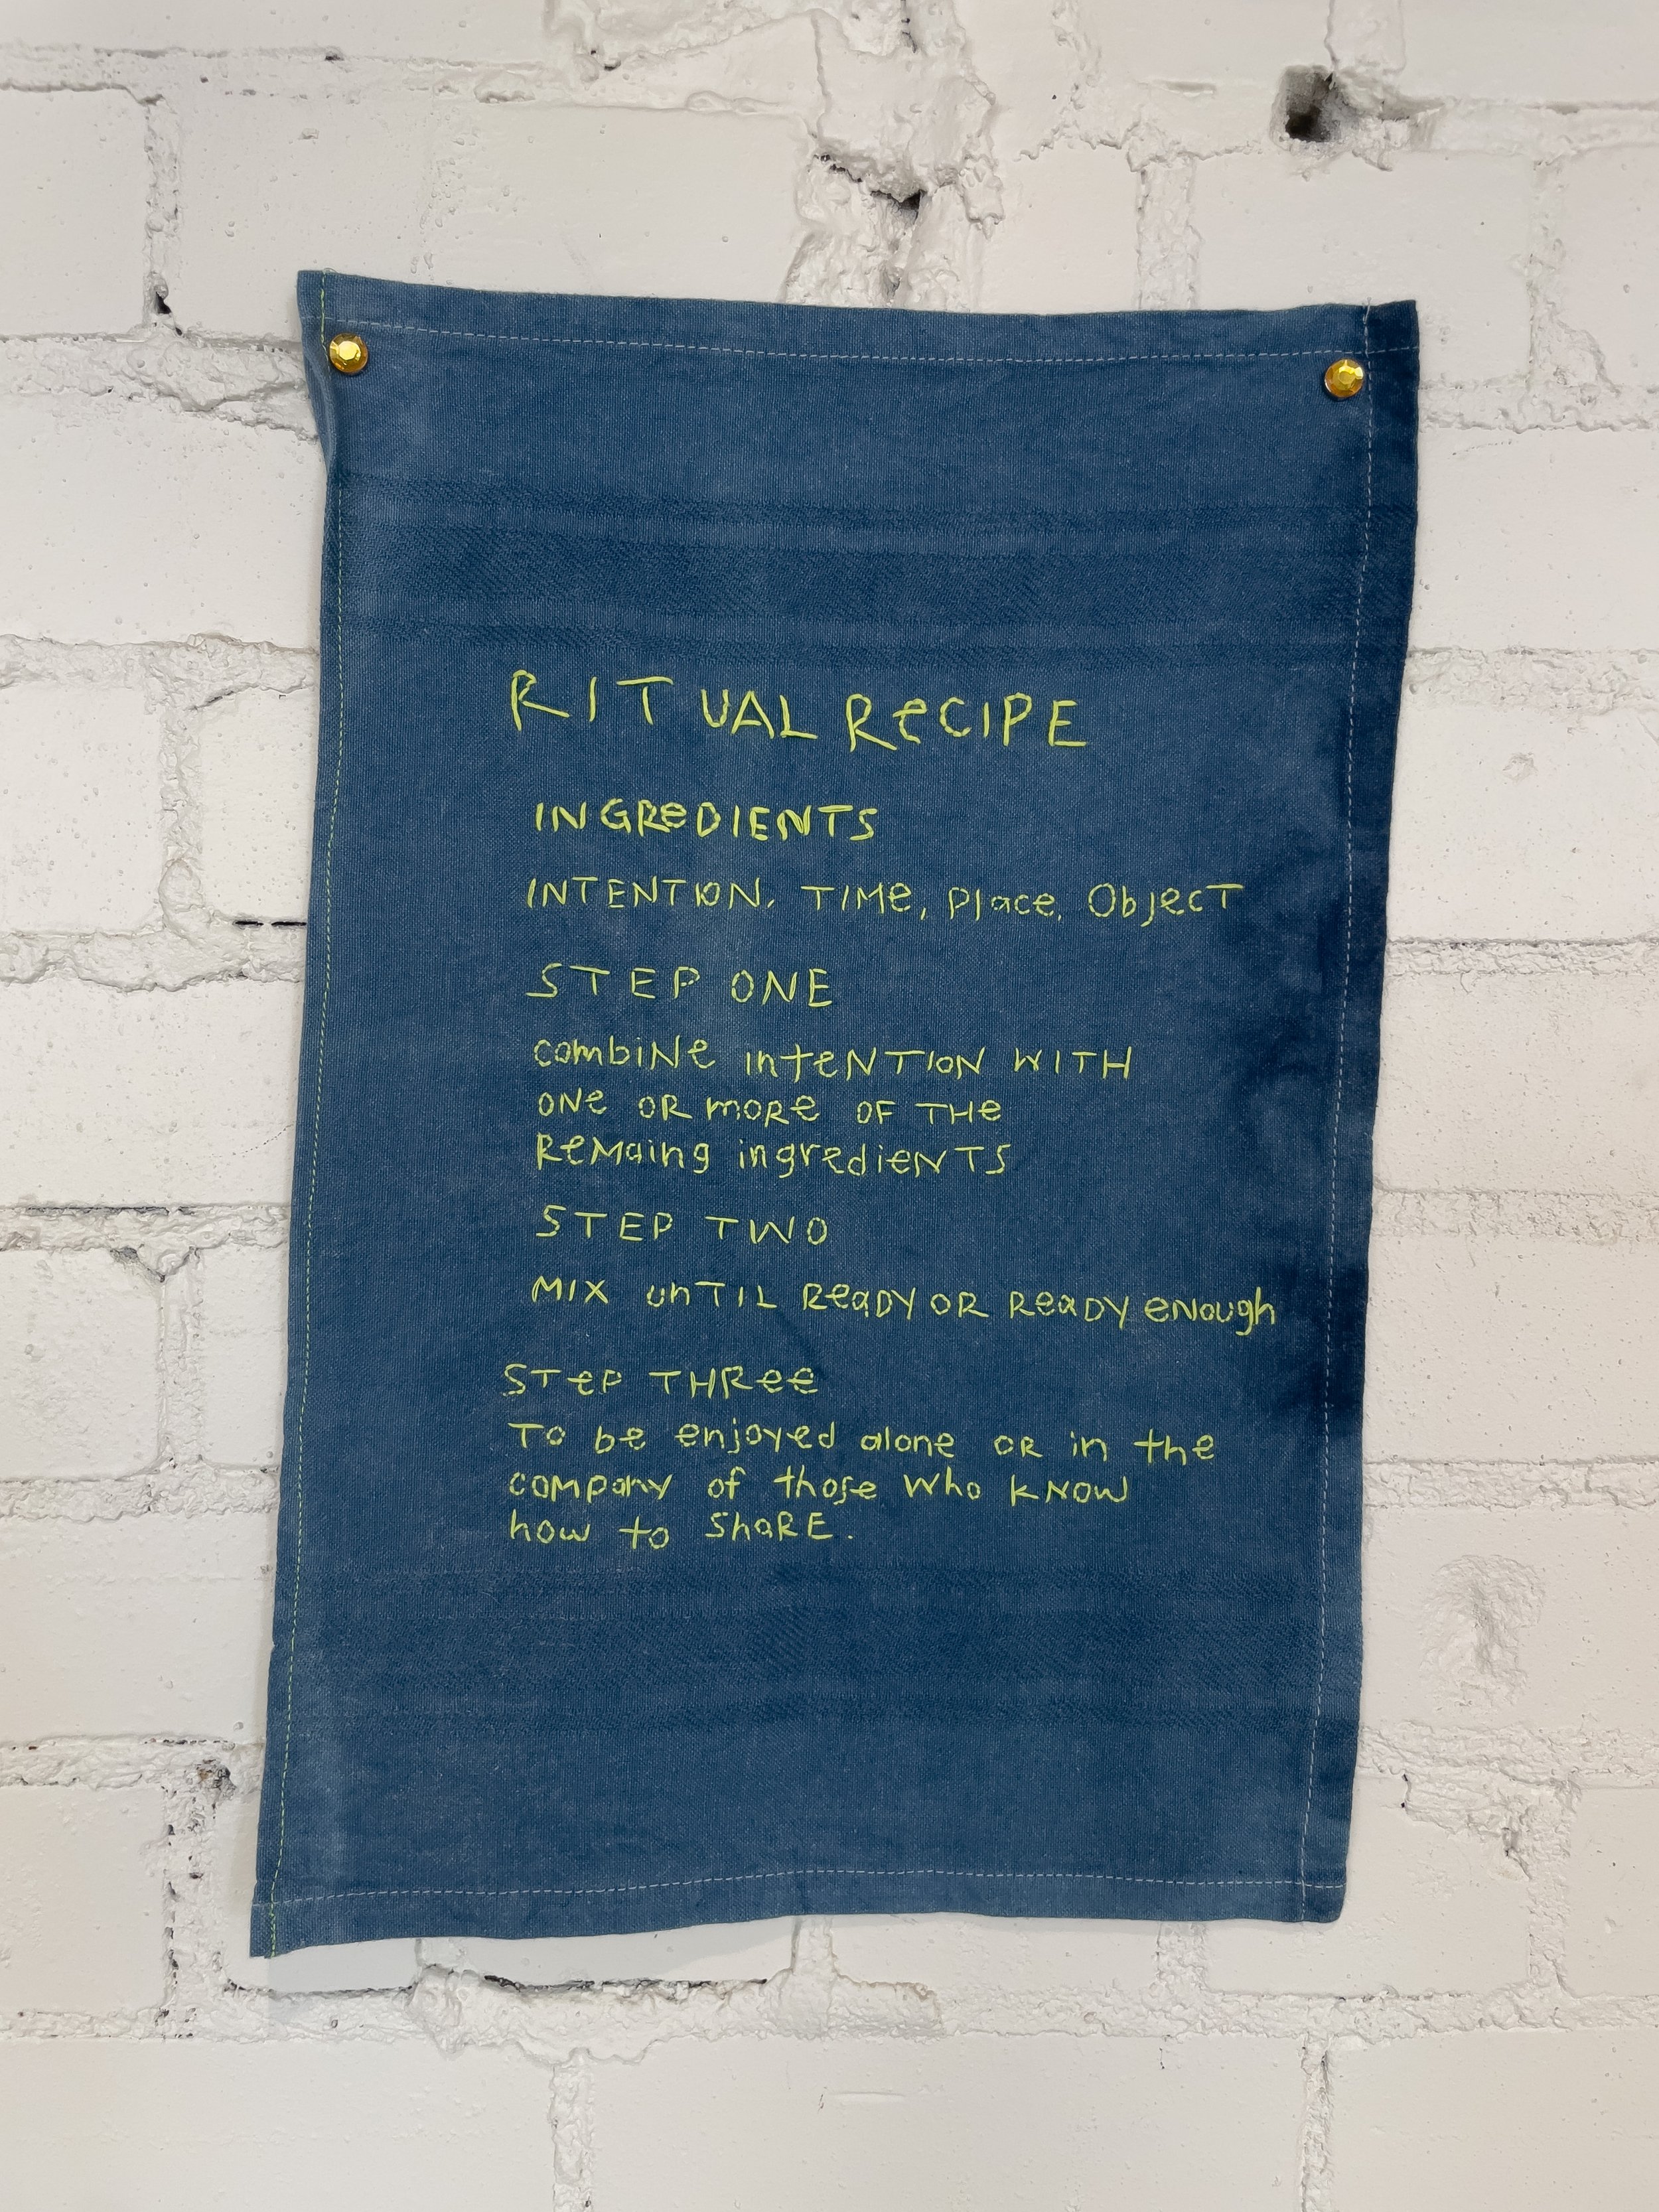 RITUAL ReCIPE
INGReDIENTS
INTENTION, TIMe, Place, ObJecT
STEP ONE
combiNe inteNTION WITH
ONe OR moRe OF THe
ReMaing ingredieNTS
STEP TWO
MIX unTIL ReaDY OR ReaDY eNough
STeP THRee
To be enjoyed alone OR in the
company of those who kNow
how to ShaRE.